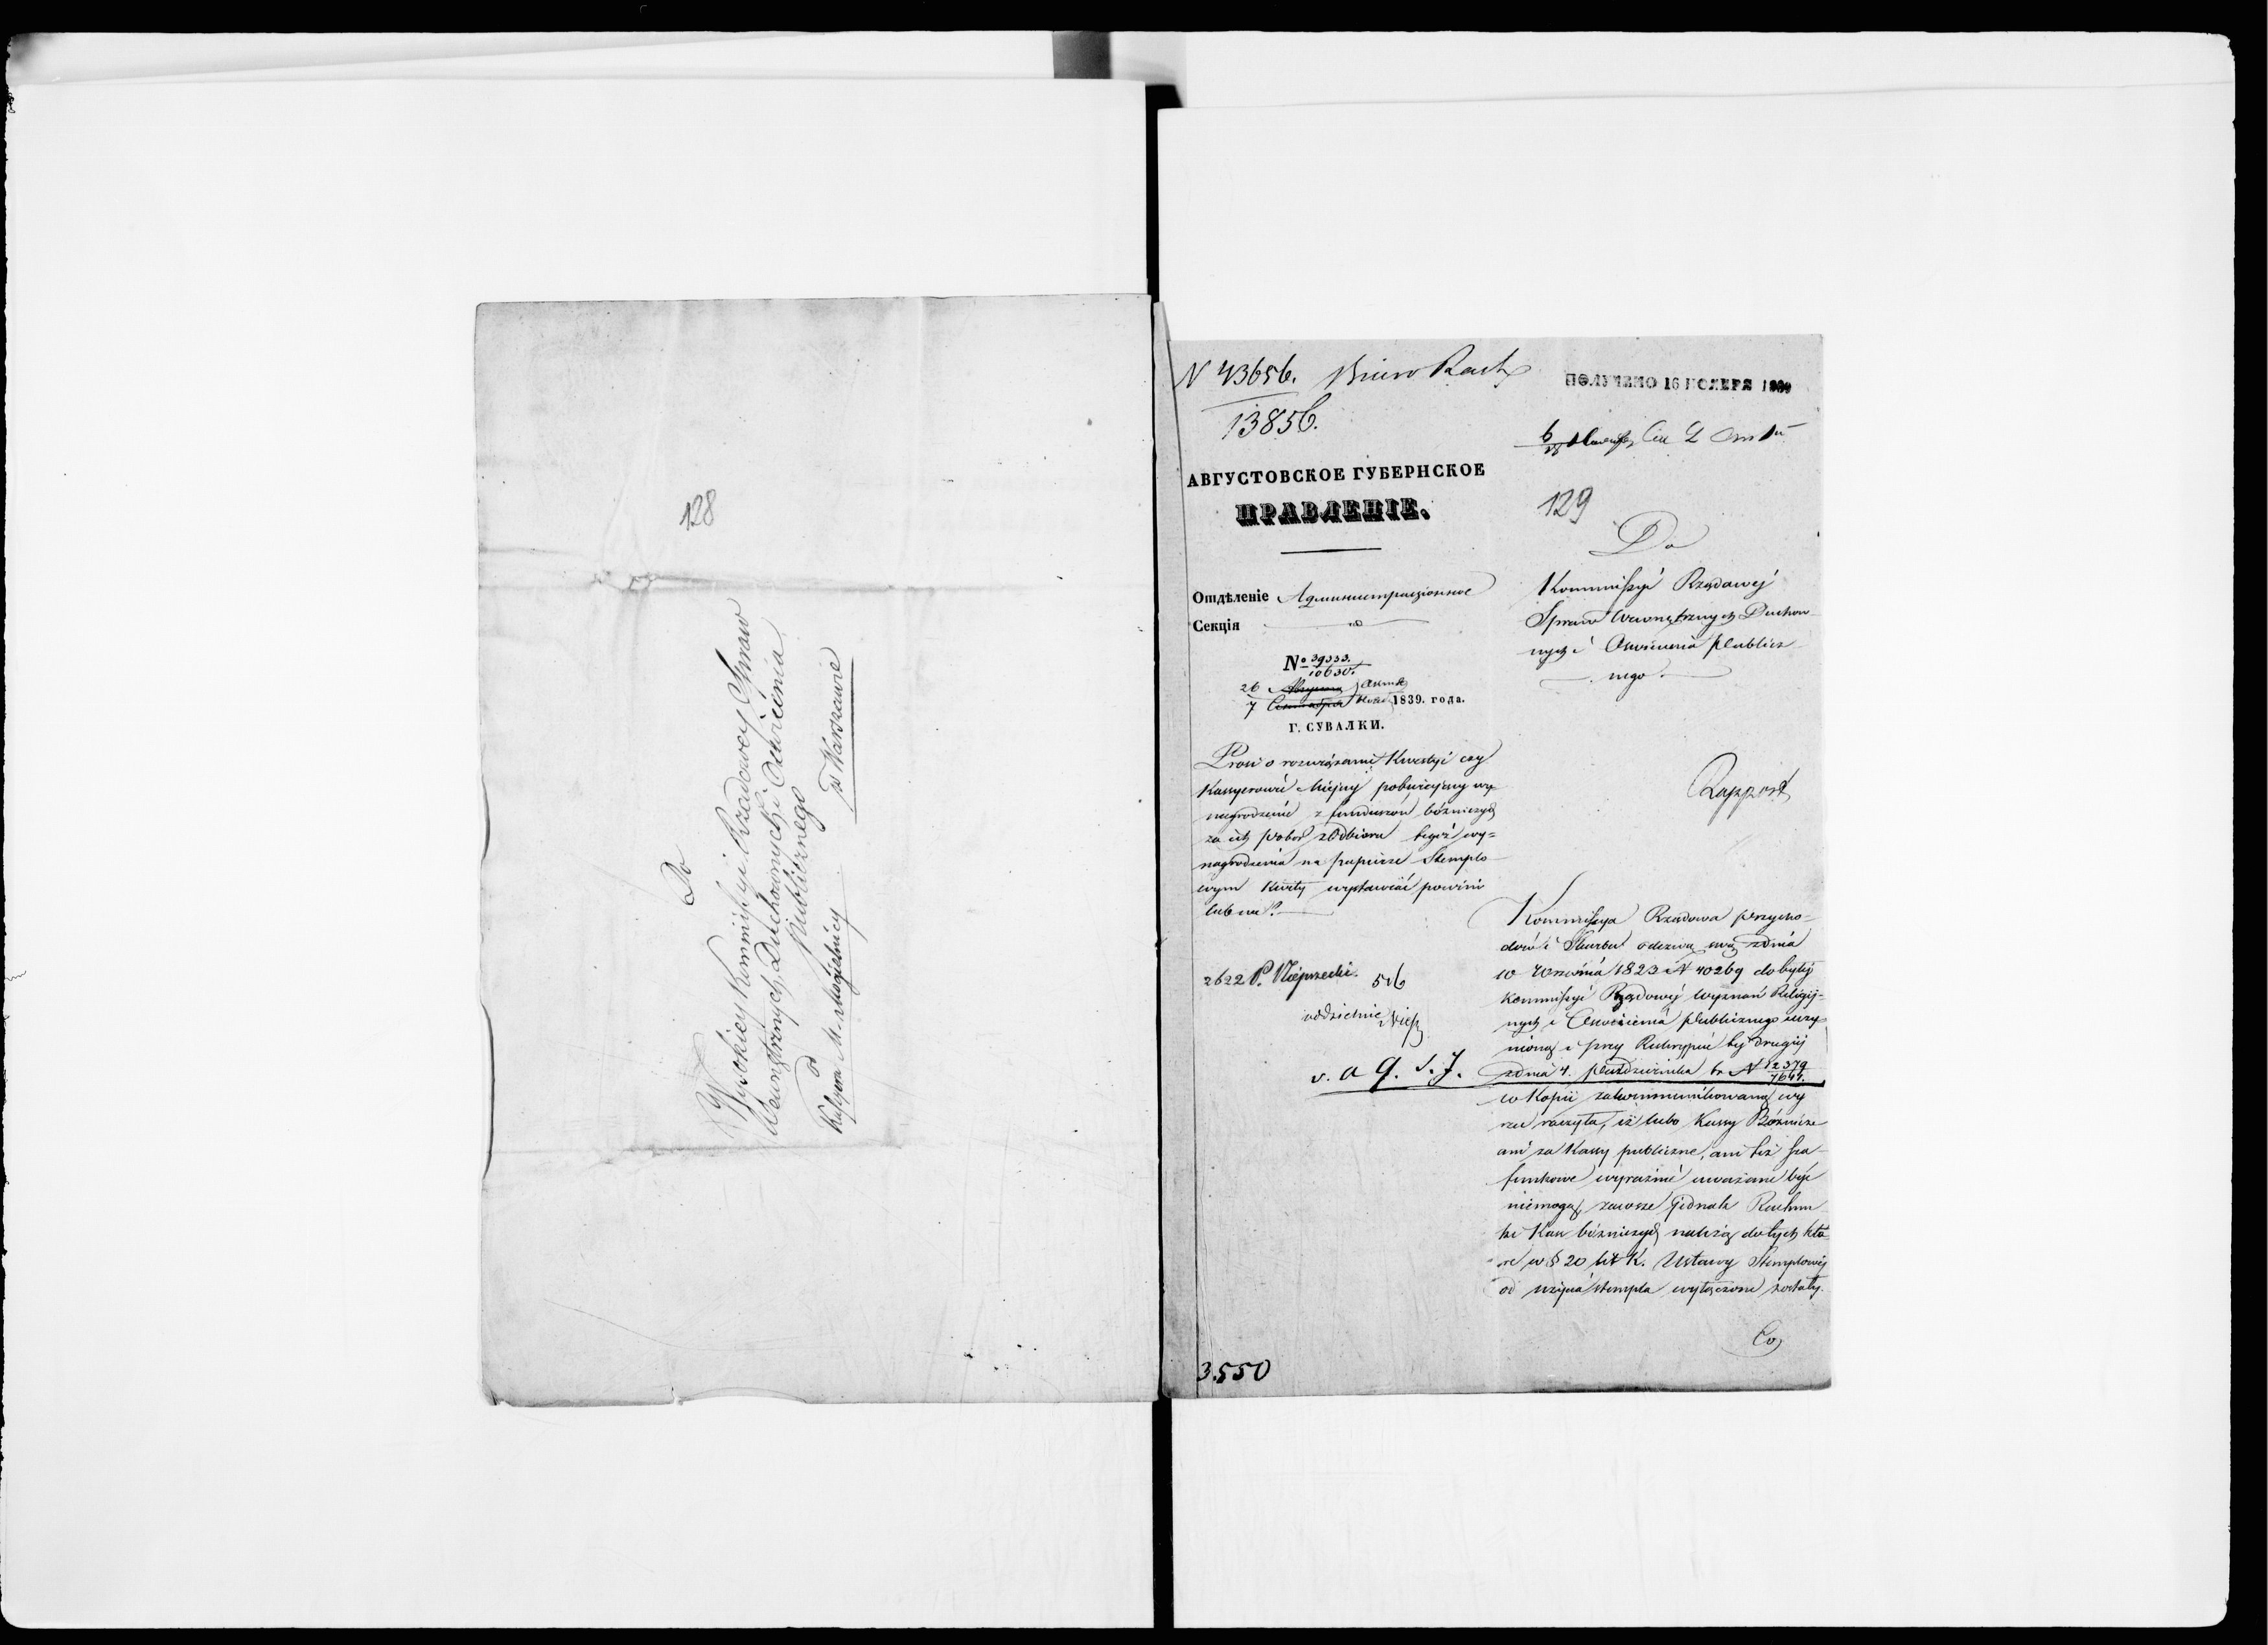 128
Do
Wysokiey Kommissyi Rządowey Spraw
Wewnętrznych, Duchownych i Oświecenia
Publicznego
w Warszawie
od
Kassyera M. Mogielnicy
N 43656. Biuro Rach
13856.
ПОЛУЧЕНО 16 НОЯБРЯ 1839
129
АВГУСТОВСКОЕ ГУБЕРНСКОЕ
ПРАВЛЕНІЕ.
Отдѣленіе Административное
Секція
№ 39333.
10630.
26 Августа
7 Сентября 1839. года.
Г. СУВАЛКИ.
Prosi o rozwiązanie Kwestyi czy
Kassyerowie Miejscy pobierający wy-
nagrodzenie z funduszów bóżniczych
za ich pobór z Odbioru tegoż wy=
nagrodzenia na papierze Stemplo-
wym Kwity wystawiać powinni
lub nie?
2622 P. 526
oddzielnie
v. a q. s. J.
3.550
Do
Kommissyi Rządowej
Spraw Wewnętrznych Duchow-
nych i Oświecenia Publicz-
nego.
Rapport
Kommissya Rządowa Przycho-
dów i Skarbu odezwą swą z dnia
10 Września 1823 N 40269 do byłej
Kommissyi Rządowej Wyznań Religij=
nych i Oświecenia Publicznego uczy-
nioną i przy Reskrypcie tej drugiej
z dnia 4. Października t.r N 12379
7644.
w Kopii zakommunikowaną wy
rzec raczyła, iż lubo Kassy Bóżnicze
ani za Kassy publiczne, ani też sza-
funkowe wyraźnie uważane być
niemogą, zawsze jednak Rachun-
ki Kass bóżniczych należą do tych któ-
re w § 20 lit K. Ustawy Stemplowej
od użycia stempla wyłączone zostały.
Co